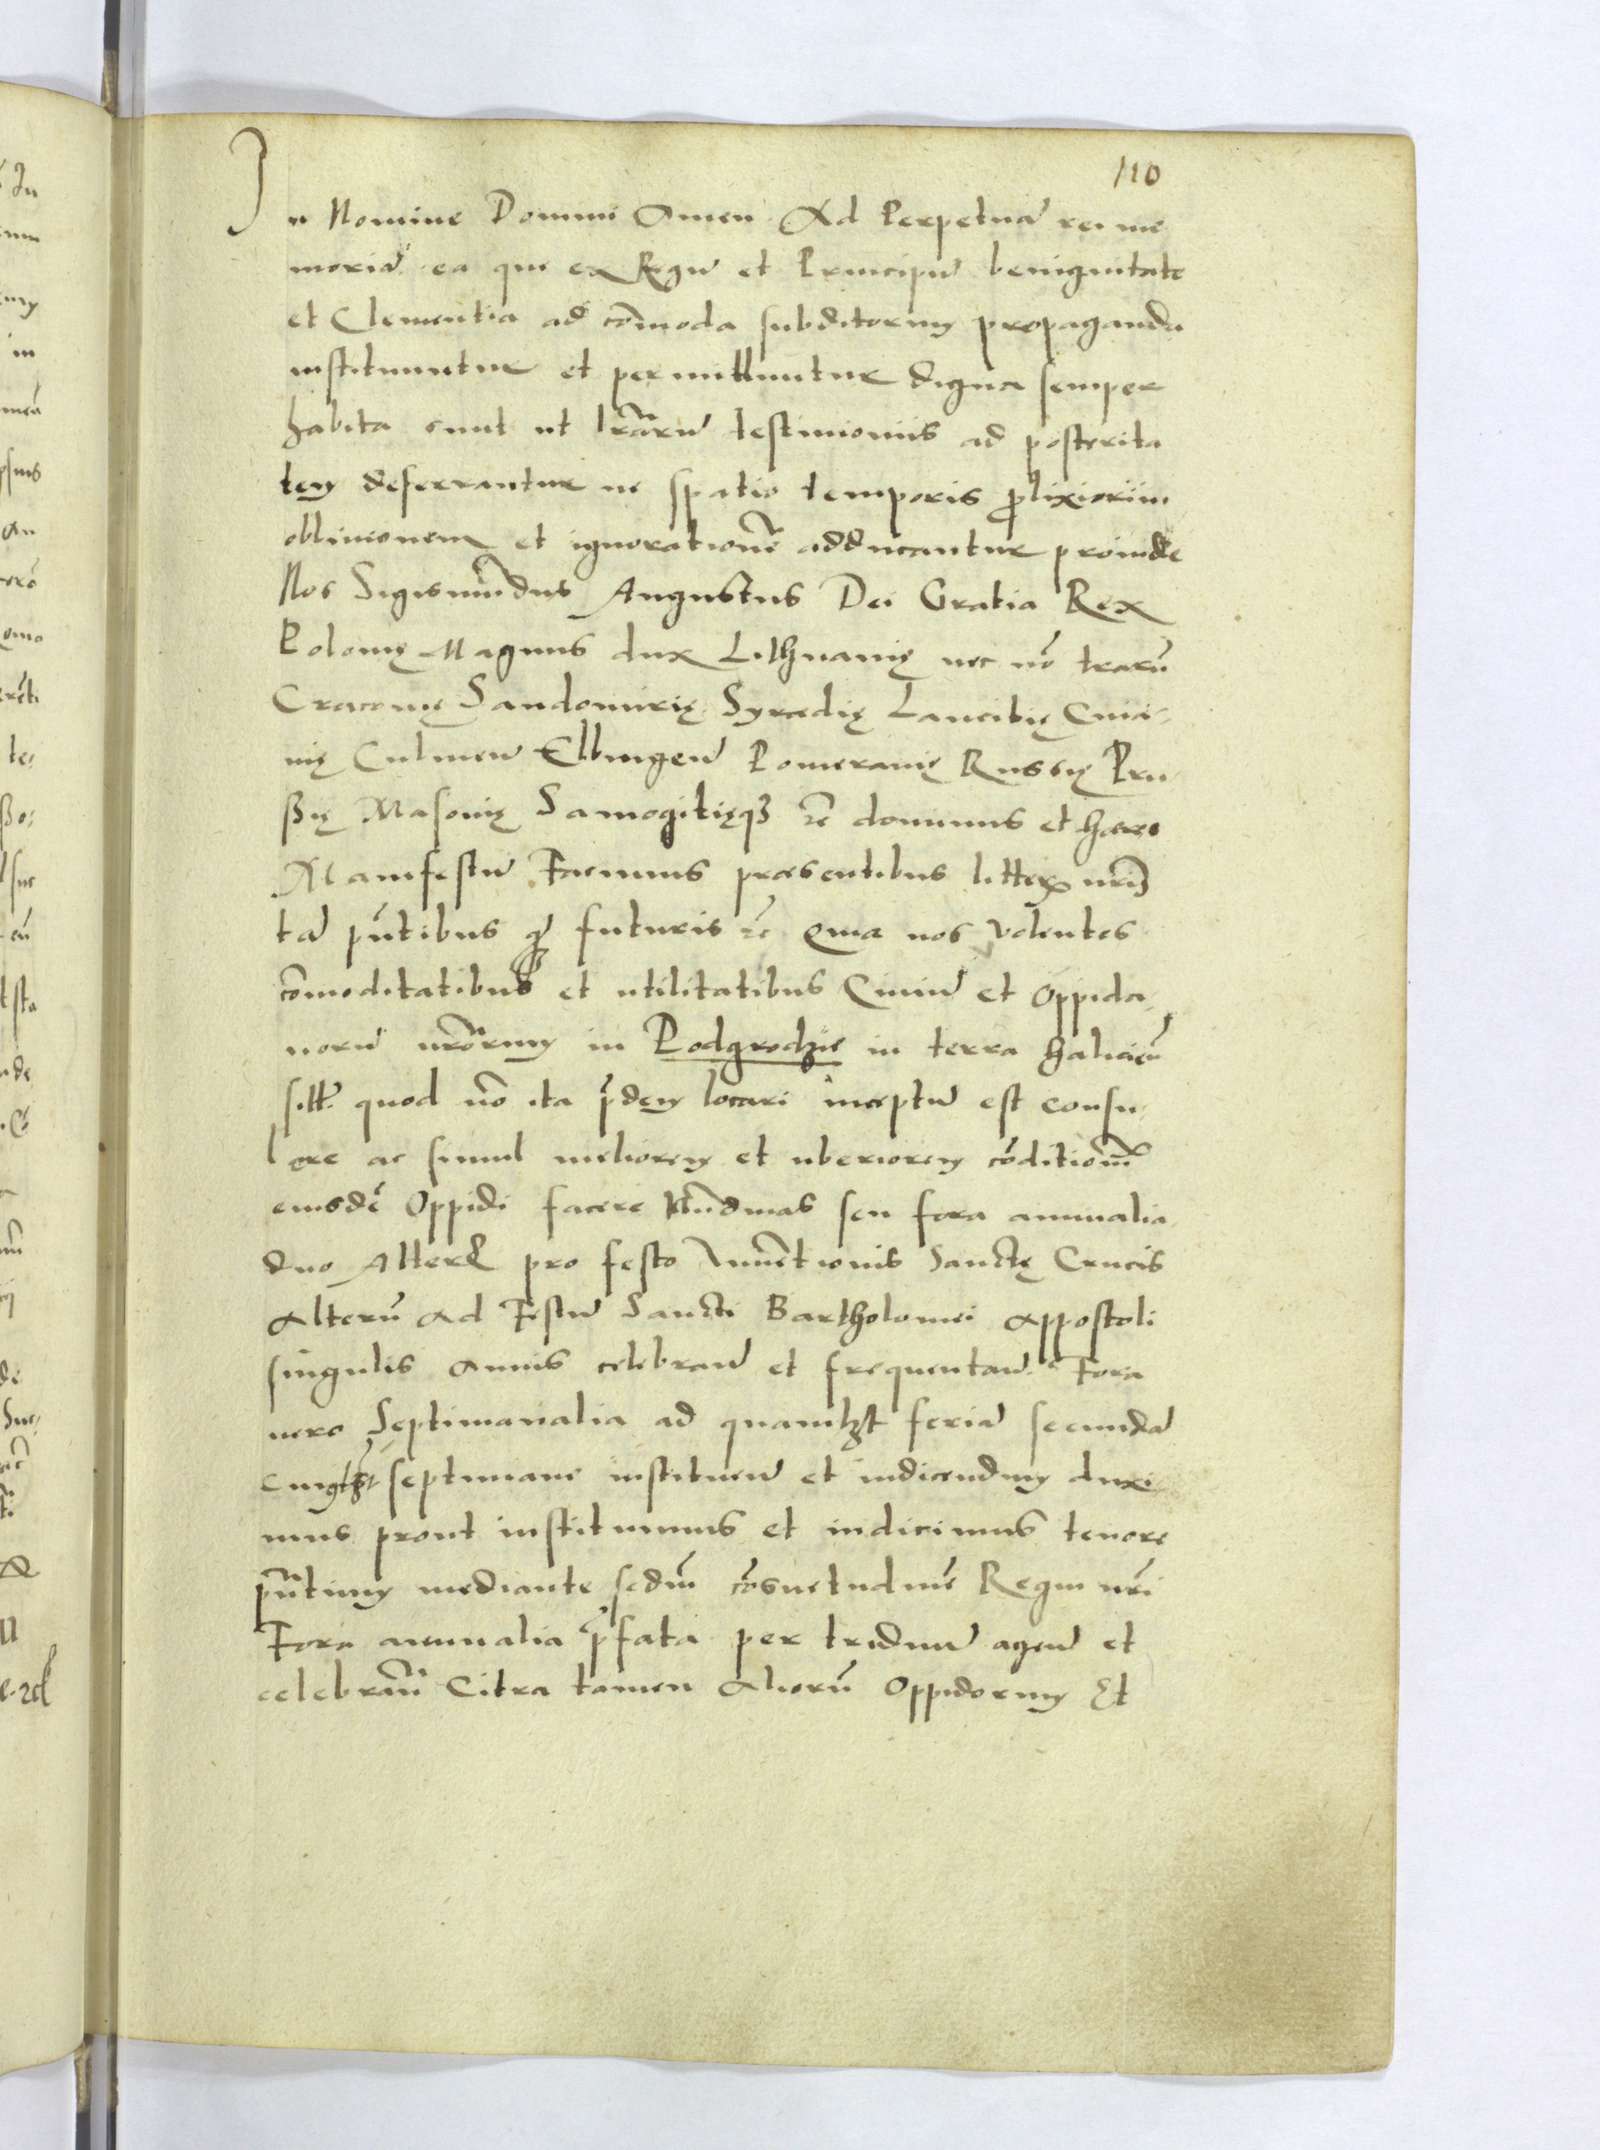 110
In Nomine Domini Amen Ad Perpetuā rei me
moriā ea que ex Regū et Principū benignitate
et Clementia ad cōmoda subditorum propaganda
instituuntur et permittuntur digna semper
habita sunt ut lrārū testimoniis ad posterita
tem deferrantur ne spatio temporis prolixiori in
oblivionem et ignorationē adducantur proinde
Nos Sigismūdus Augustus Dei Gratia Rex
Polonię Magnus dux Lithuanię nec nō trarū
Cracovię Sandomirię Syradię Lancibię Cuia-
vię Culmeñ Elbingeñ Pomeranię Russię Pru
ssię Masovię Samogitięq₃ zc̄ dominus et haeres
Manifestū Facimus praesentibus litteris nr̄is
tā pñtibus ꝙ futuris zc̄ Quia nos volentes
cōmoditatibus et utilitatibus Civiū et Oppida-
norū nrōrum in Podgrodzie in terra Halicieñ
sitt. quod nō ita p̄dem locari inceptū est consu-
lere ac simul meliorem et uberiorem cōditionē
eiusdē Oppidi facere Nūdinas seu fora annualia
duo Alterū pro festo Invētionis Sanctę Crucis
Alterū Ad Festū Sancti Bartholomei Appostoli
singulis Annis celebrañ et frequentañ. Fora
vero Septimanalia ad quamlꝫt feriā secundā
cuiuslꝫt septimane instituēñ et indicendum duxi
mus prout instituimus et indicimus tenore
pñtium mediante secdm̄ cōsuetudinē Regni nr̄i
Fora annualia p̄fata per triduū ageñ et
celebrāñ Citra tamen Aliorū Oppidorum Et